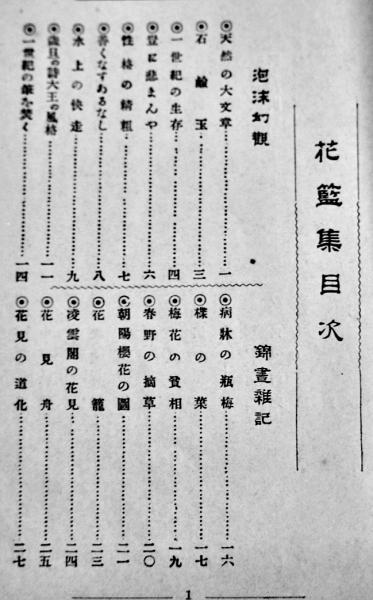 花籃集目次
泡沫幻觀
◉天然の大文章……一
◉石鹼玉……三
◉一世紀の生存……四
◉豈に悲まんや……六
◉性格の精粗……七
◉善くなすあるなし……八
◉水上の快走……九
◉歲旦の詩大王の風格……一一
◉一世紀の筆を焚く……一四
錦畫雜記
◉病牀の瓶梅……一六
◉楪の菜……一七
◉梅花の貧相……一九
◉春野の摘草……二〇
◉朝陽櫻花の圖……二一
◉花籠……二三
◉凌雲閣の花見……二四
◉花見舟……二五
◉花見の道化……二七
1